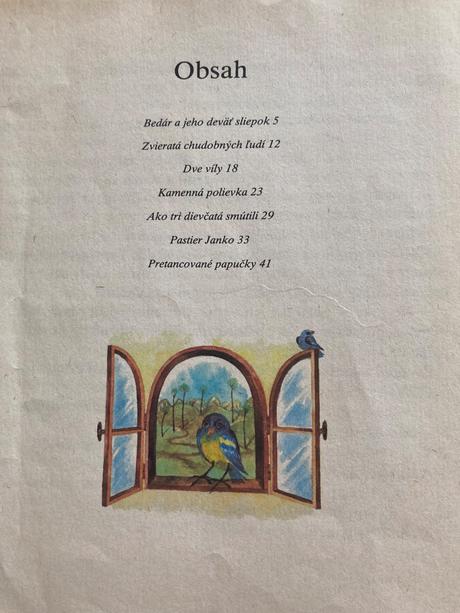 Obsah
Bedár a jeho deväť sliepok 5
Zvieratá chudobných ľudí 12
Dve víly 18
Kamenná polievka 23
Ako tri dievčatá smútili 29
Pastier Janko 33
Pretancované papučky 41